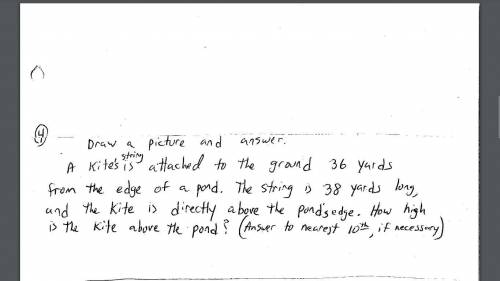 4
Draw a picture and answer.
string
A Kite's is attached to the ground 36 yards
from the edge of a pond. The string is 38 yards long,
and the kite is directly above the pond's edge. How high
is the kite above the pond? (Answer to nearest 10th, if necessary)